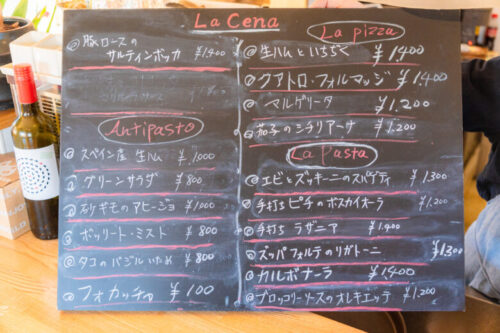 La Cena
◎ 豚ロースの
サルティンボッカ ¥1,400
Antipasto
◎ スペイン産 生ハム ¥1,000
◎ グリーンサラダ ¥800
◎ 砂ギモのアヒージョ ¥1,000
◎ ボッリート・ミスト ¥800
◎ タコのバジルいため ¥800
◎ フォカッチャ ¥100
La pizza
◎ 生ハムといちぢく ¥1,400
◎ クアトロ・フォルマッジ ¥1,400
◎ マルゲリータ ¥1,200
◎ 茄子のシチリアーナ ¥1,200
La Pasta
◎ エビとズッキーニのスパゲティ ¥1,300
◎ 手打ちピチのボスカイオーラ ¥1,200
◎ 手打ち ラザニア ¥1,400
◎ ズッパフォルテのリガトーニ ¥1,300
◎ カルボナーラ ¥1,400
◎ ブロッコリーソースのオレキエッテ ¥1,200